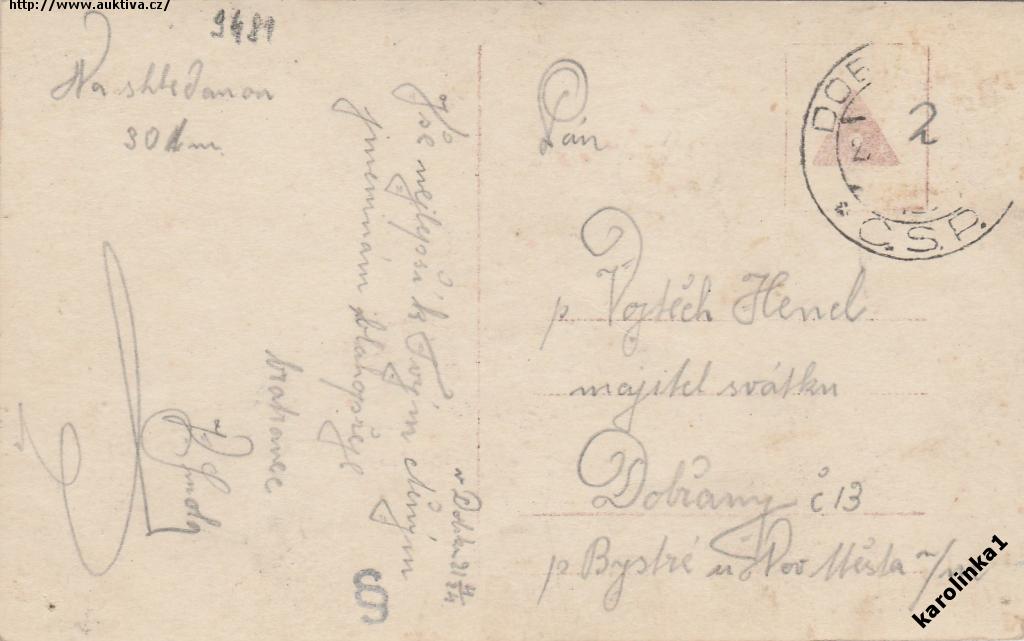 http://www.auktiva.cz/
9481
Na shledanou
30 m.
Co nejlepší k Tvým ctěným
jmeninám blahopřeje
bratranec
Pán
p Vojtěch Hencl
majitel svátku
Dobřany č 13
p Bystré u Nov Města n/m
2
DOB
* Č.S.P.
karolinka1